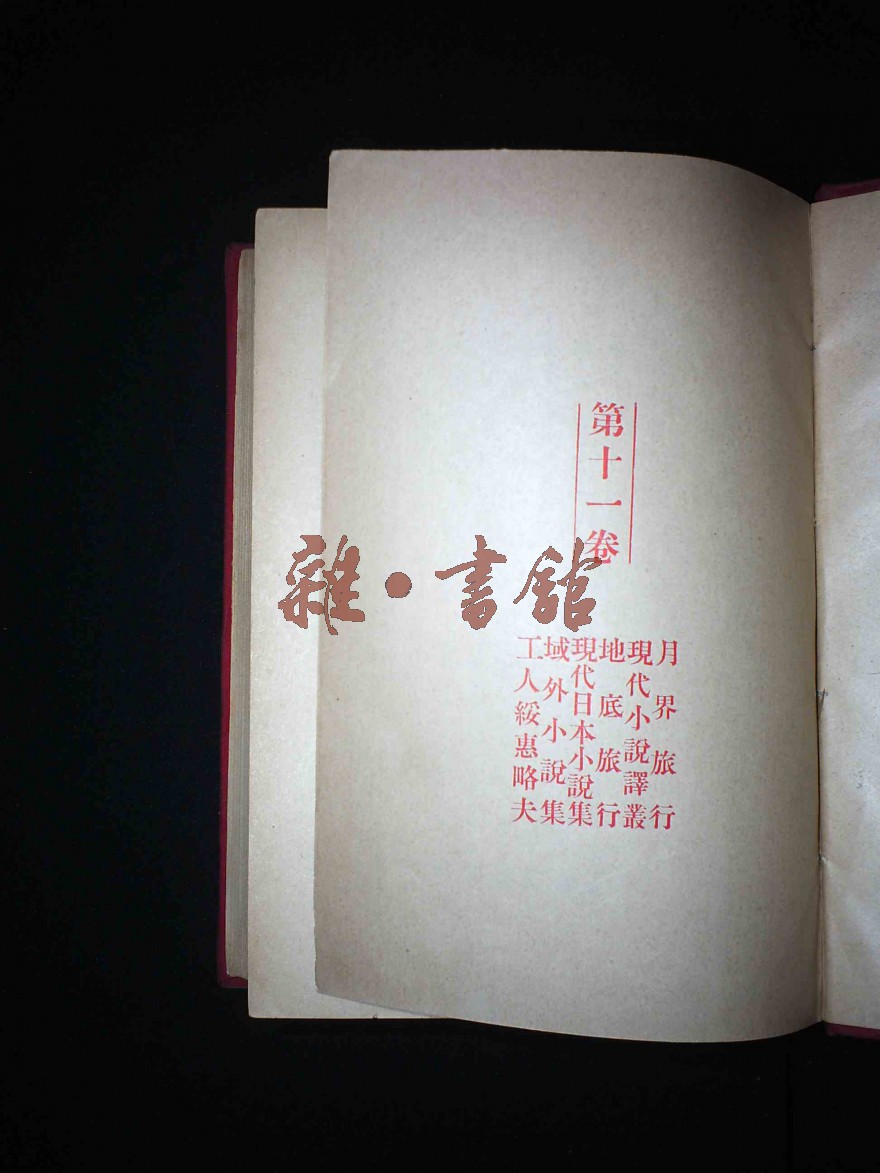 第十一卷
月界旅行
現代小說譯叢
地底旅行
現代日本小說集
域外小說集
工人綏惠略夫
雜·書館